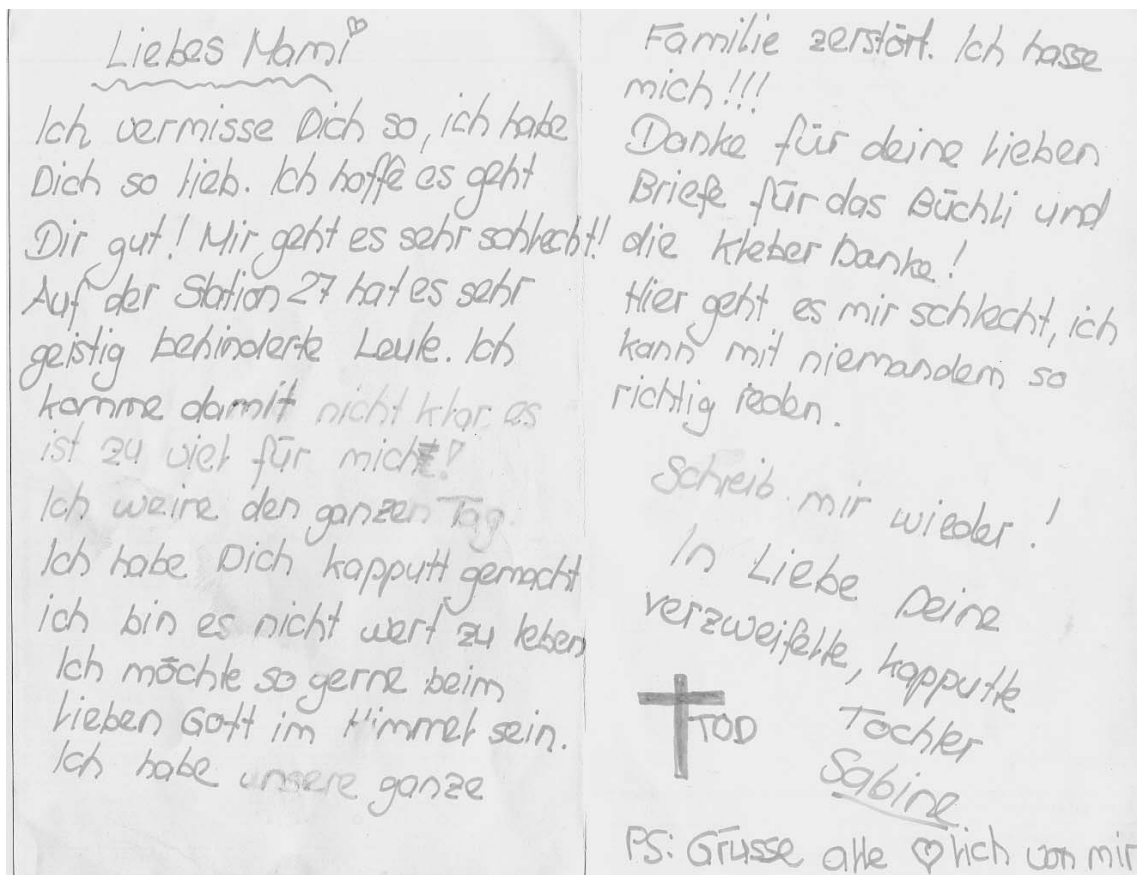 Liebes Mami
Ich vermisse Dich so, ich habe
Dich so lieb. Ich hoffe es geht
Dir gut! Mir geht es sehr schlecht!
Auf der Station 27 hat es sehr
geistig behinderte Leute. Ich
komme damit nicht klar es
ist zu viel für mich!
Ich weine den ganzen Tag.
Ich habe Dich kapputt gemacht
ich bin es nicht wert zu leben
Ich möchte so gerne beim
lieben Gott im Himmel sein.
Ich habe unsere ganze
Familie zerstört. Ich hasse
mich!!!
Danke für deine lieben
Briefe für das Büchli und
die Kleber Danke!
Hier geht es mir schlecht, ich
kann mit niemandem so
richtig reden.
Schreib mir wieder!
In Liebe Deine
verzweifelte, kapputte
Tochter
TOD
Sabine
PS: Grüsse alle ♡lich von mir